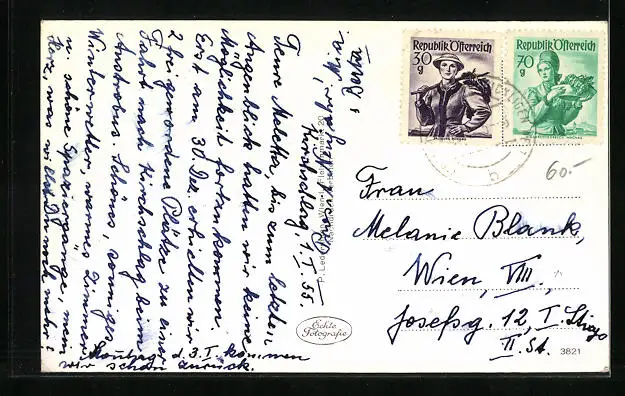 Kirchschlag 1. I. 55.
Teure Maletta, bis zum letzten
Augenblick hatten wir keine
Möglichkeit fortzukommen.
Erst am 30. Dez. erhielten wir
2 frei gewordene Plätze zu einer
Fahrt nach Kirchschlag beim
Austrobus. Schöns, sonniges
Winterwetter, warmes Zimmer
u. schöne Spaziergänge, mein
Herz, was willst Du noch mehr!
Montag, d. 3. I. kommen
wir schon zurück.
Echte
Fotografie
Republik Österreich
30
g
Republik Österreich
70
g
b
60.-
Frau
Melanie Blank,
Wien, VIII,
Josefsg. 12, I. Stiege
II. St.
3821